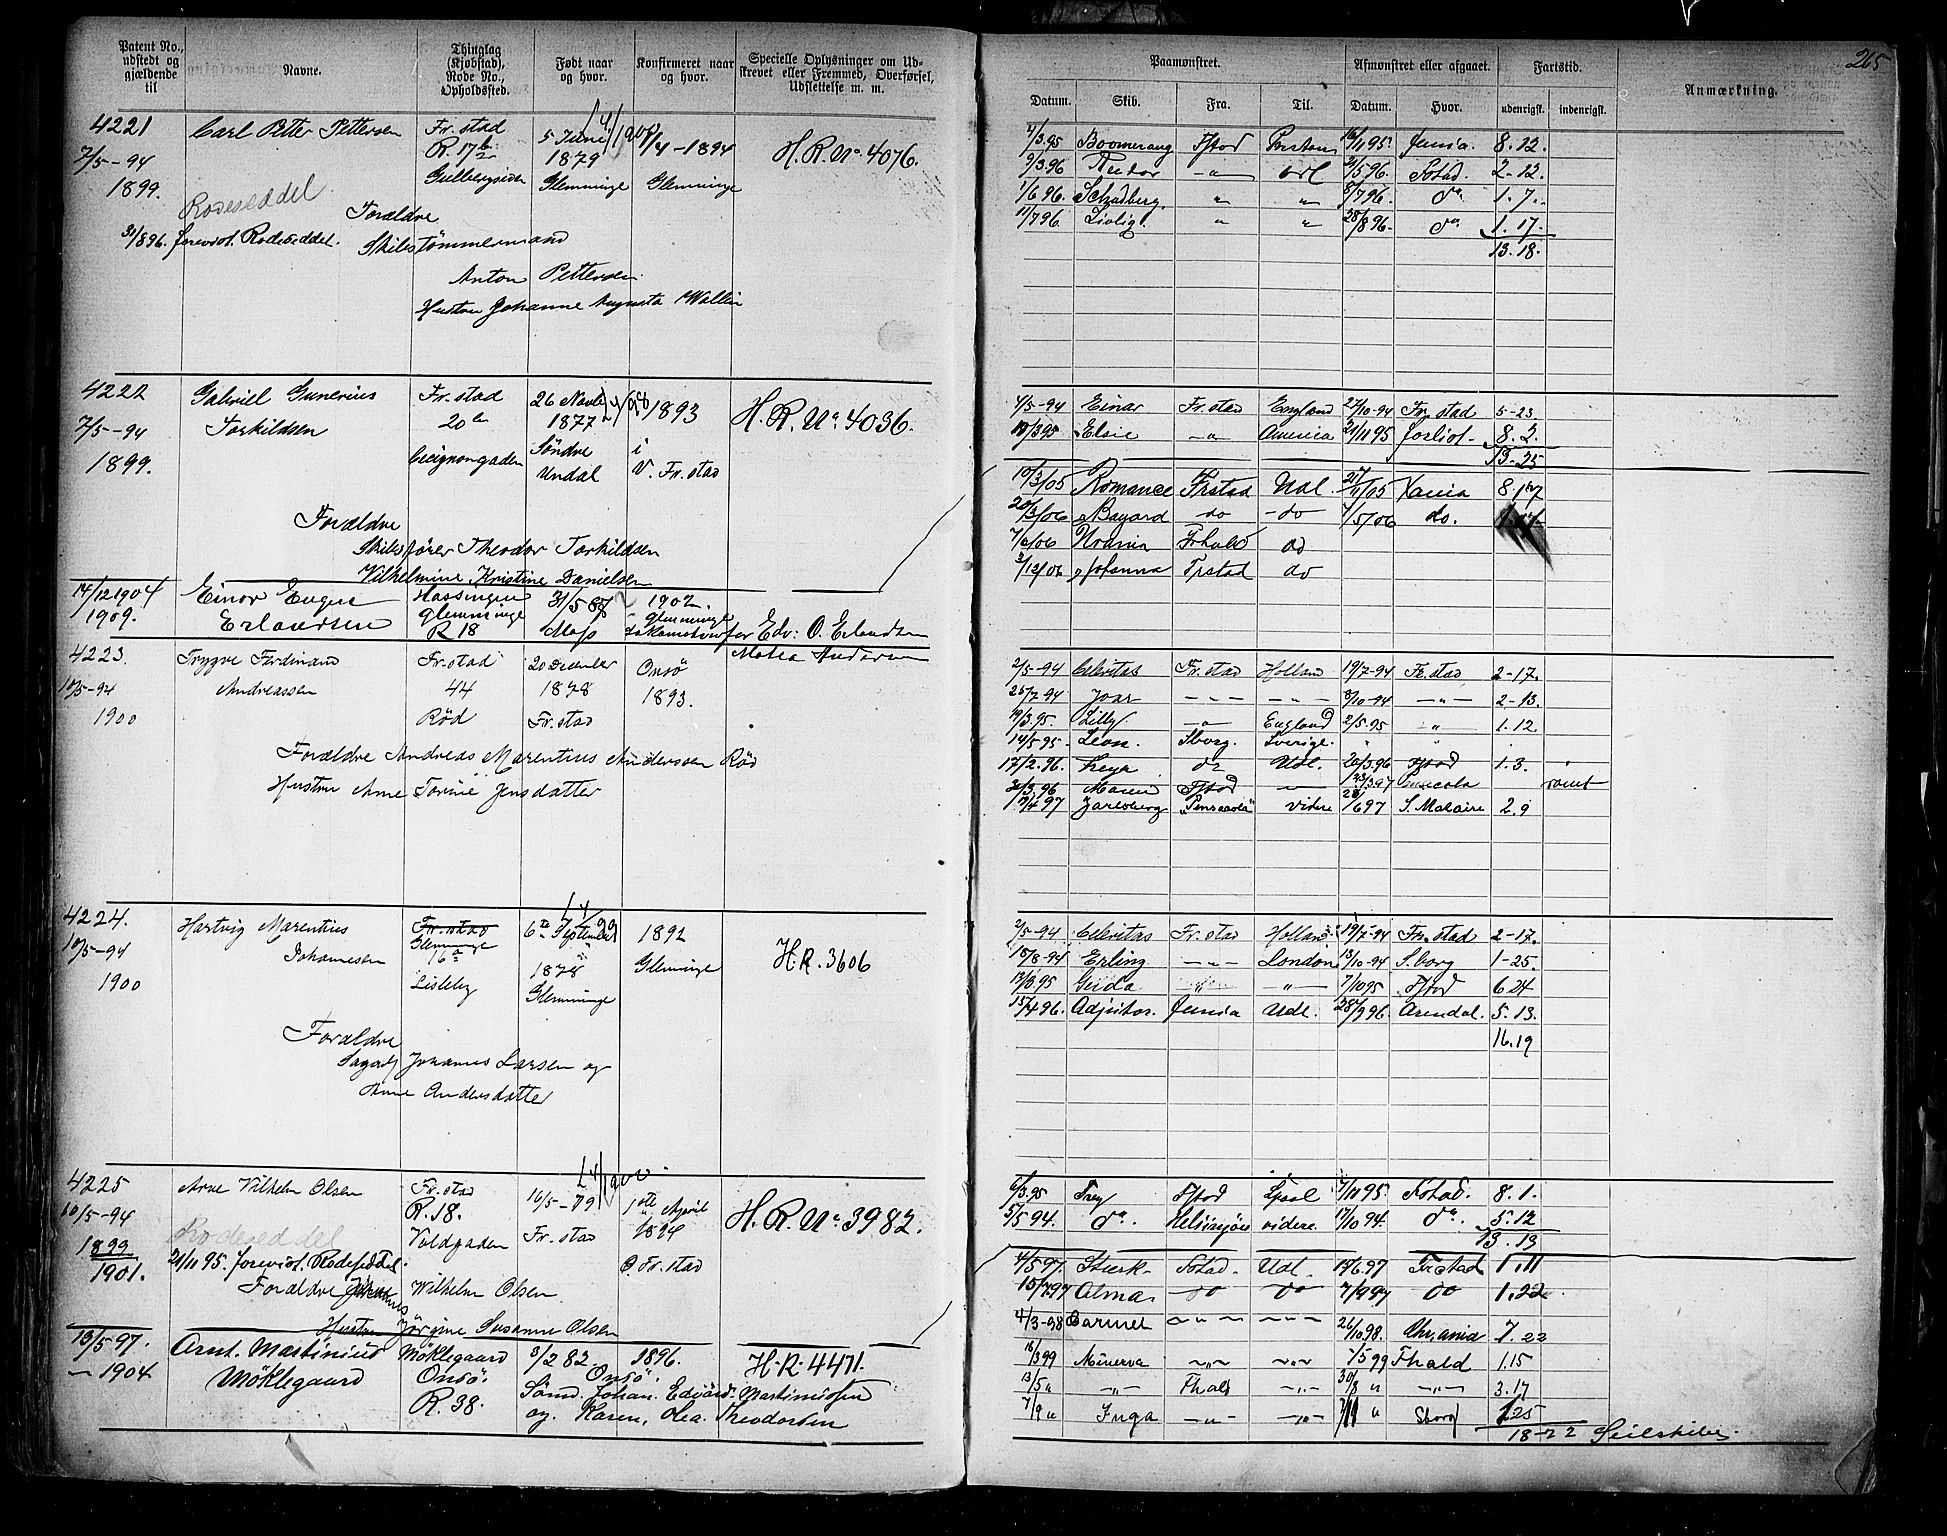 Patent No., udstedt og gjældende til
Navne.
Thinglag (Kjøbstad), Rode No., Opholdssted.
Født naar og hvor.
Konfirmeret naar og hvor.
Specielle Oplysninger om Udskrevet eller Fremmed, Overførsel, Udslettelse m. m.
4221 Carl Petter Pettersen Fr.stad 5 Juni
7/5-94 R. 17b 1879 8/4-1894 H.R. No 4076.
1899. Glemminge Glemminge
Rodeseddel
Forældre
31/896. forevist Rodeseddel. Skibstømmermand
Anton Pettersen
Hustru Johanne Augusta Wallin
4222 Gabriel Gunerius Fr.stad 26 Novbr 1893 H.R. No 4036.
7/5-94 Torkildsen 20b 1877
1899. Cicignongaden Søndre i
Undal V. Fr.stad
Forældre
Skibsfører Theodor Torkildsen
Vilhelmine Kristine Danielsen
14/12 1904 Einar Eugen 31/5 87 1902.
1909. Erlandsen Glemminge Glemminge
R 18 Moss Edv: O. Erlandsen
4223. Trygve Ferdinand Fr.stad 20 December Onsø
10/5-94 Andreassen 44 1878 1893.
1900 Rød Fr.stad
Forældre Andreas Marentius Anderssen Rød
Hustru Anne Torine Jensdatter
4224. Hartvig Marentius Fr.stad 6te September 1892
10/5-94 Johannesen Glemminge 16a 1878 Glemminge H.R. 3606
1900 Lisleby Glemminge
Forældre
Johannes Larsen og
Anne Andersdatter
4225 Arne Vilhelm Olsen Fr.stad 16/5-79 1ste April
10/5-94 R. 18. Fr.stad 1894 H.R. No 3982.
1899 Rodeseddel Voldgaden
1901. 21/11 95. forevist Rodeseddel. O. Fr.stad
Forældre Johannes Wilhelm Olsen
Hustru Jørgine Susanne Olsen
13/5-97. Arnt. Martinius Møklegaard 3/2 82 1896. H.R. 4471.
- 1904 Møklegaard Onsø. Onsø.
R. 38. Johan. Edvard. Martiniussen
og. Karen, Olea. Theodorsen
265
Paamønstret.
Afmønstret eller afgaaet.
Fartstid.
Anmærkning.
Datum. Skib. Fra. Til. Datum. Hvor. udenrigsk. indenrigsk.
4/3.95 Boomerang Fstad Preston 16/11 95. 8.12.
9/3.96 Tudor -"- 21/5 96. Fstad. 2-12.
1/6 96. " " 8/7 96. do 1.7.
11/7 96. Livlig. " " 28/8 96. do 1.17.
13.18.
4/5-94 Einar Fr.stad England 27/10-94 Fr.stad 5-23.
19/3 95 Elsie -"- America 21/11 95 forlist 8.2.
13-25
10/3/05 Romance Frstad Udl. 27/11/05 Xania 8.17
20/3/06 Bayard do do 7/5/06 do.
7/6/06 Urania Frhald do
3/12/06 Johanna Frstad do
2/5-94 Celeritas Fr.stad Holland 19/7-94 Fr.stad 2-17.
25/7-94 Joar - " - - " - 8/10-94 - " - 2-13.
19/3.95. Lilly -"- England 2/5.95 " 1.12.
14/5-95. Leon. Sborg. Sverige. " "
17/2.96. Freya do Udl. 20/3 96 Fstad 1.3.
31/3.96 Fstad 23/3 97 Pensacola rømt
17/4 97 Jarlsberg "Pensacola" videre 28/6 97 S. Malaire 2.9
2/5-94 Celeritas Fr.stad Holland 19/7-94 Fr.stad 2-17.
18/8-94 Erling - " - London 13/10-94 S.borg 1-25.
13/3.95 Guida - " - - " - 7/10 95 Fstad 6.24
15/4 96. Adjutor. Udl. 28/9 96. Arendal. 5.13.
16.19
6/3.95 Frey Fstad 7/11 95. Fstad. 8.1.
5/5 94. do. Helsingør videre 17/10 94. do. 5.12
13.13
4/5 97. Stærk Fstad. Udl. 14/6.97 Frstad 1.11
15/7 97 Alma. do do 7/9 97 do 1.22.
4/3-98 Carmel - " - - " - 26/10 98. Chr.ania 7.22
18/3 99 Minerva - " - - " - 1/5 99 Fhald 1.15
13/5 " - " - Fhald - " - 30/8 " - " - 3.17
7/9 " Inga - " - - " - 7/11 " Sborg 1.25
18-22 Seilskibe.